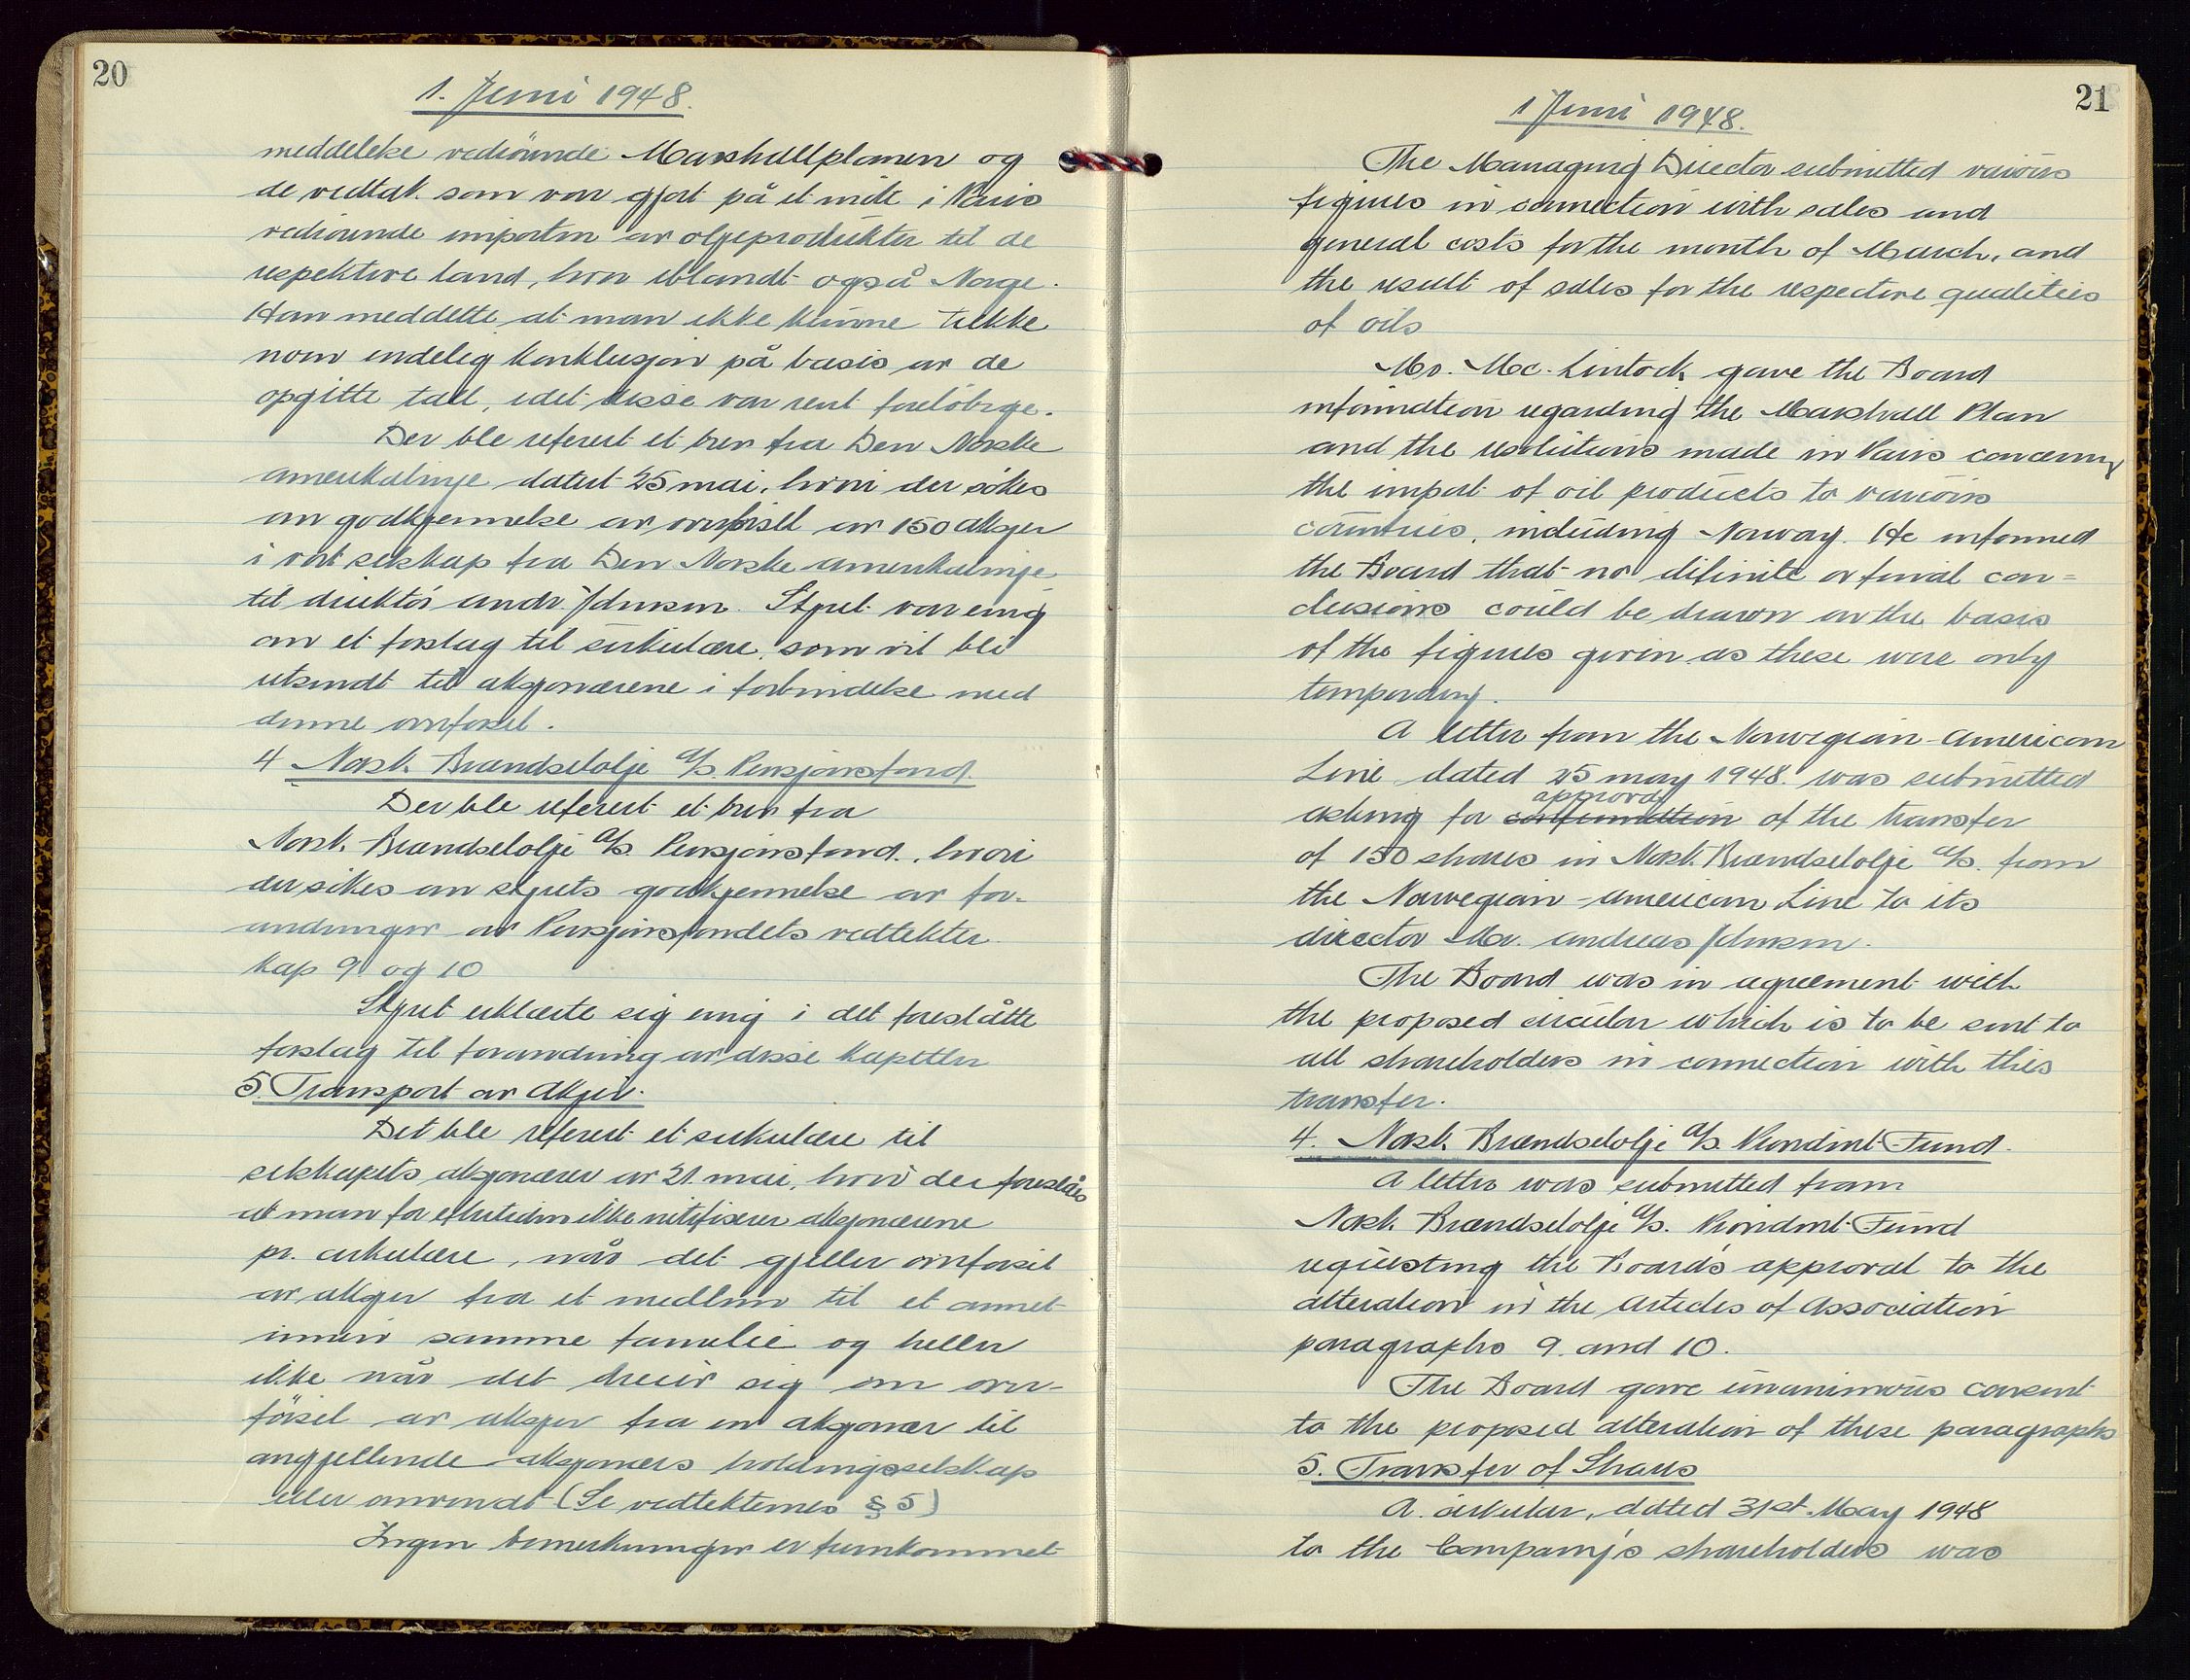 20
1. Juni 1948.
meddelelse vedrörende Marshallplanen og
de vedtak som var gjort på et möte i Paris
vedrörende importen av oljeprodukter til de
respektive land, hvor iblandt også Norge.
Han meddelte at man ikke kunne trekke
noen endelig konklusjon på basis av de
opgitte tall, idet disse var rent forelöbige.
Der ble referert et brev fra Den Norske
Amerikalinje datert 25 mai, hvori der sökes
om godkjennelse av overförsel av 150 aksjer
i vårt selskap fra Den Norske Amerikalinje
til direktör Andr. Johnsen. Styret var enig
om et forslag til sirkulære, som vil bli
utsendt til aksjonærene i forbindelse med
denne overförsel.
4 Norsk Brændselolje A/S. Pensjonsfond.
Der ble referert et brev fra
Norsk Brændselolje A/S. Pensjonsfond, hvori
der sökes om styrets godkjennelse av for-
andringer av Pensjonsfondets vedtekter
kap 9. og 10
Styret erklærte sig enig i det foreslåtte
forslag til forandring av disse kapitler
5. Transport av Aksjer.
Det ble referert et sirkulære til
selskapets aksjonærer av 31. mai, hvori der foreslåes
at man for eftertiden ikke notifiserer aksjonærene
pr. cirkulære, når det gjeller overförsel
av aksjer fra et medlem til et annet
innen samme familie og heller
ikke når det dreier sig om over-
försel av aksjer fra en aksjonær til
angjellende aksjonærs holdingsselskap
eller omvendt (Se vedtektenes § 5)
Ingen bemerkninger er fremkommet
21
1 Juni 1948.
The Managing Director submitted various
figures in connection with sales and
general costs for the month of March, and
the result of sales for the respective qualities
of oils
Mr. Mc. Lintock gave the Board
information regarding the Marshall Plan
and the resolutions made in Paris concerning
the import of oil products to various
countries, including Norway. He informed
the Board that no difinite or final con=
clusions could be drawn on the basis
of the figures given as these were only
temporary.
A letter from the Norwegian-American
Line dated 25 may 1948. was submitted
approval
asking for confirmation of the transfer
of 150 shares in Norsk Brændselolje A/S. from
the Norwegian-American Line to its
director Mr. Andreas Johnsen.
The Board was in agreement with
the proposed circular which is to be sent to
all shareholders in connection with this
transfer.
4. Norsk Brændselolje A/S. Provident Fund.
A letter was submitted from
Norsk Brændselolje A/S. Provident Fund
requesting the Board's approval to the
alteration in the Articles of Association
paragraphs 9. and 10.
The Board gave unanimous consent
to the proposed alteration of these paragraphs
5. Transfer of Shares
A. cirkular, dated 31st. May 1948
to the Company's shareholders was